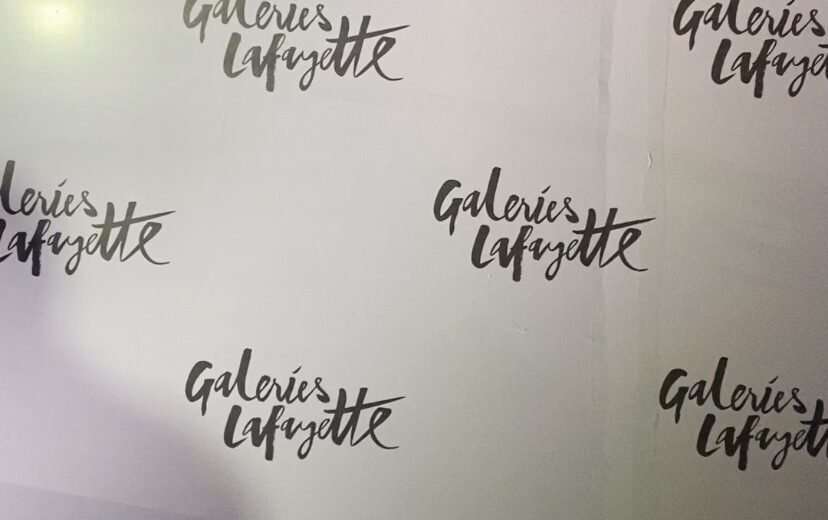 Galeries
Lafayette
Galeries
Lafayette
leries
Lafayette
Galeries
Lafayette
Galeries
Lafayette
Galeries
Lafayette